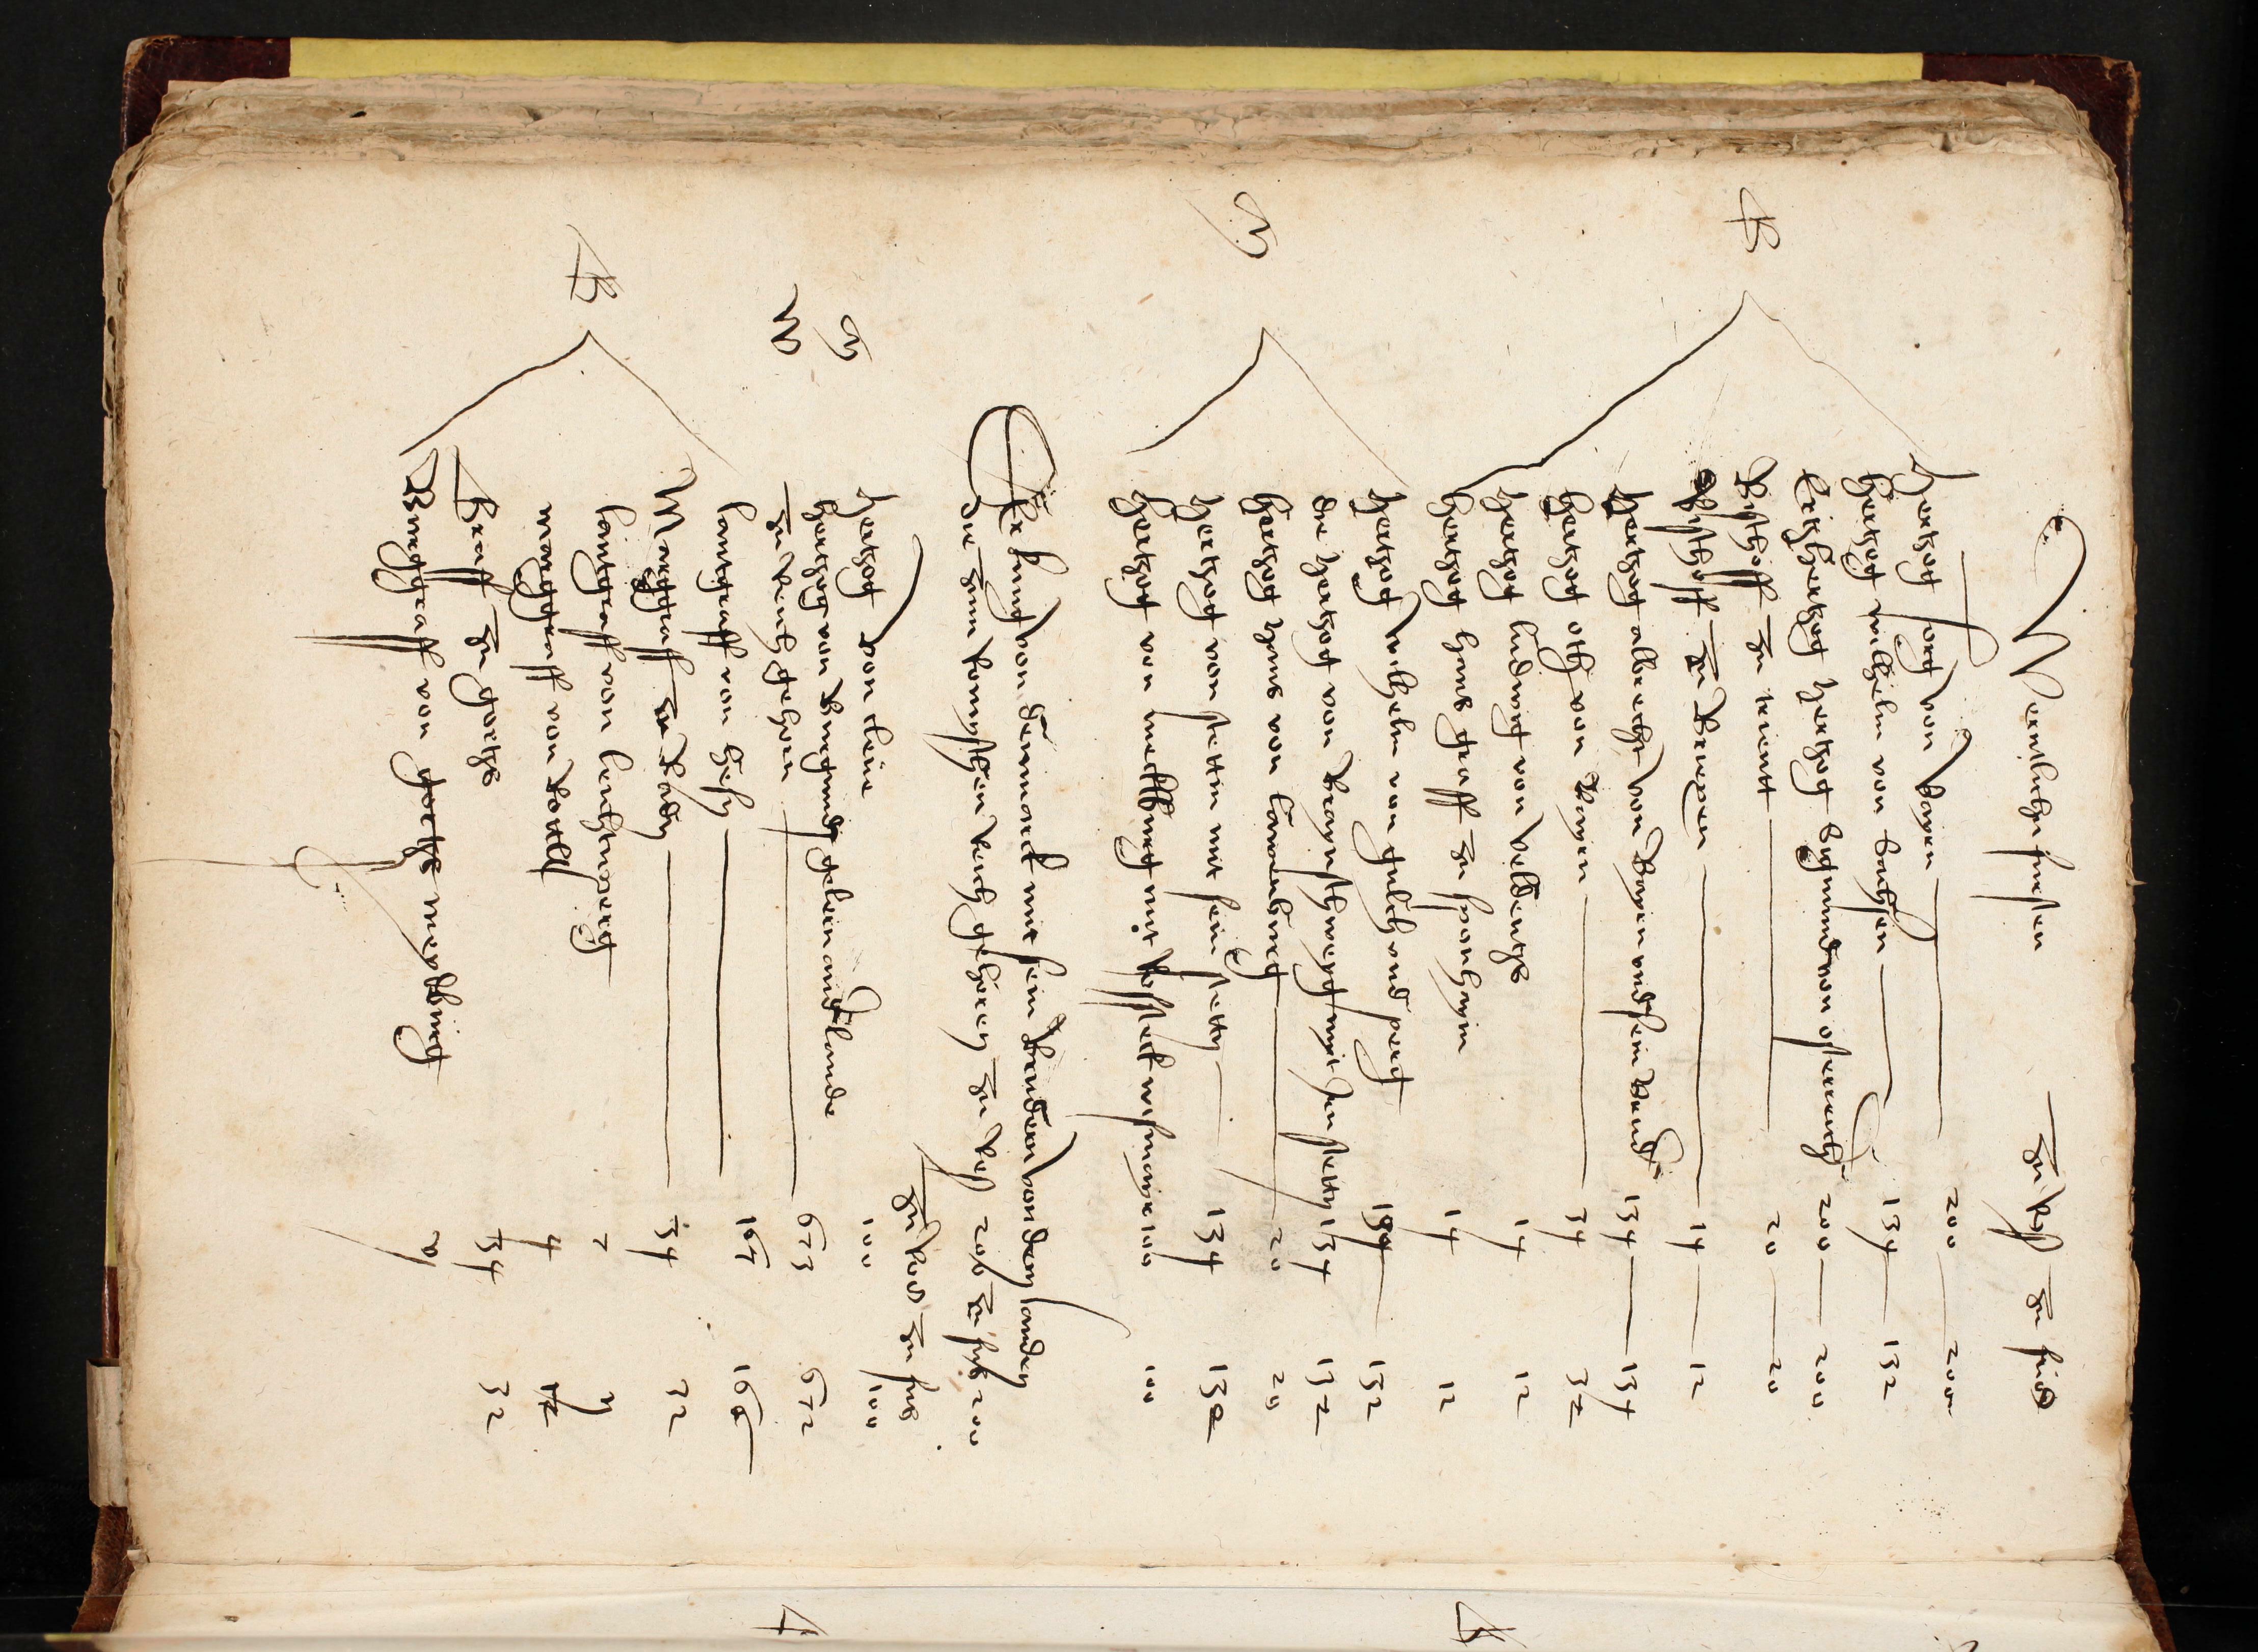 Werntliche fursten zu Roß zu fuß
Hertzog jorg von bayrn 200 200
Hertzog wilhelm von Sachsen 134 132
Ertzhertzog hertzog Sigmund von osterreich 200 200
Bischoff zu trientt 20 20
Bischoff zu brixen 14 12
Hertzog albrecht von Bayrn und sein bruder 134 134
Hertzog ott von Bayrn 34 32
Hertzog ludwig von veldentz 14 12
Hertzog hans graff zu sponheym 14 12
Hertzog wilhelm von gulch und perg 134 132
die hertzog von braunschweyg mit iren stetten 134 132
Hertzog hans von lawenburg 20 20
Hertzog von stettin mit sein stetten 134 132
Hertzog von mecklburg mit Rosstock wißmayr 100 100
Der kunig von denmarck mit sein bruder von den landen
die zum Romischen Reich gehoren zu Roß 200 zu fuß 200
zu Ross zu fuß
Hertzog von cleve 100 100
Hertzog von burgundj gelern und lande
zu Reich gehorn 673 672
lantgraff von hessen 167 166
Marggraff zu Baden 34 32
lantgraff von leuchtenperg 5 7
marggraff von Rottel 4 12
Graff zu gortz 34 32
Burggraff von meydburg